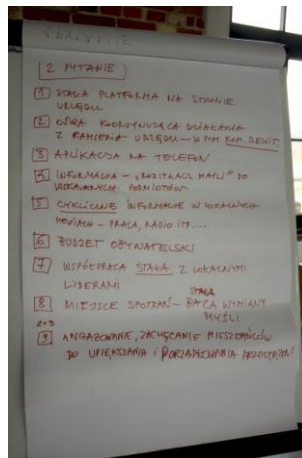 2 PYTANIE
1 STAŁA PLATFORMA NA STRONIE
URZĘDU
2 OSOBA KOORDYNUJĄCA DZIAŁANIA
Z RAMIENIA URZĘDU – W TYM KOM. REWIT.
3 APLIKACJA NA TELEFON
4 INFORMACJA – „ROZSYŁACZ MAILI" DO
WSKAZANYCH PODMIOTÓW
5 CYKLICZNE INFORMACJE W LOKALNYCH
MEDIACH – PRASA, RADIO ITP....
6 BUDŻET OBYWATELSKI
7 WSPÓŁPRACA STAŁA Z LOKALNYMI
LIDERAMI
8 MIEJSCE SPOTKAŃ – STAŁA BAZA WYMIANY
MYŚLI
2+3
9 ANGAŻOWANIE, ZACHĘCANIE MIESZKAŃCÓW
DO UPIĘKSZANIA I PORZĄDKOWANIA PRZESTRZENI